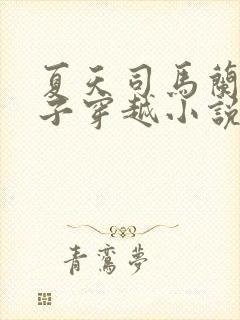 夏天司馬蘭
子穿越小說
青鸞夢